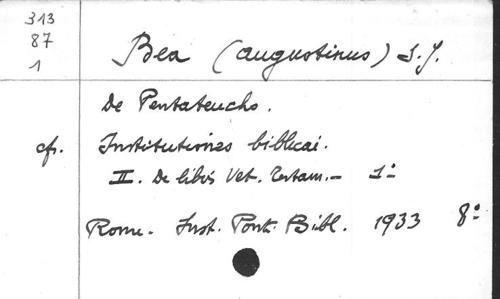 313
87
1
Bea (Augustinus) S.J.
De Pentateucho.
cfr. Institutiones biblicai.
II. De libis Vet. Testam. - 1º
Rome. Inst. Pont. Bibl. 1933 8º